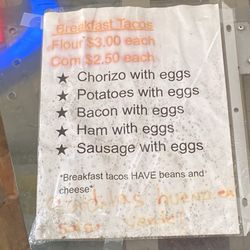 Breakfast Tacos
Flour $3.00 each
Corn $2.50 each
★ Chorizo with eggs
★ Potatoes with eggs
★ Bacon with eggs
★ Ham with eggs
★ Sausage with eggs
*Breakfast tacos HAVE beans and
cheese*